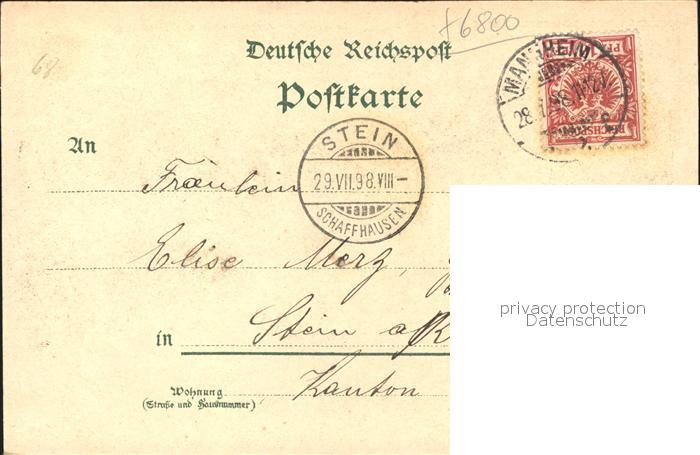 68
+6800
Deutsche Reichspost
Postkarte
MANNHEIM
28
REICHSPOST
STEIN
29.VII.98.VIII–
SCHAFFHAUSEN
An
Fräulein
Elise Merz,
in Stein a/R
Kanton
Wohnung
(Straße und Hausnummer)
privacy protection
Datenschutz